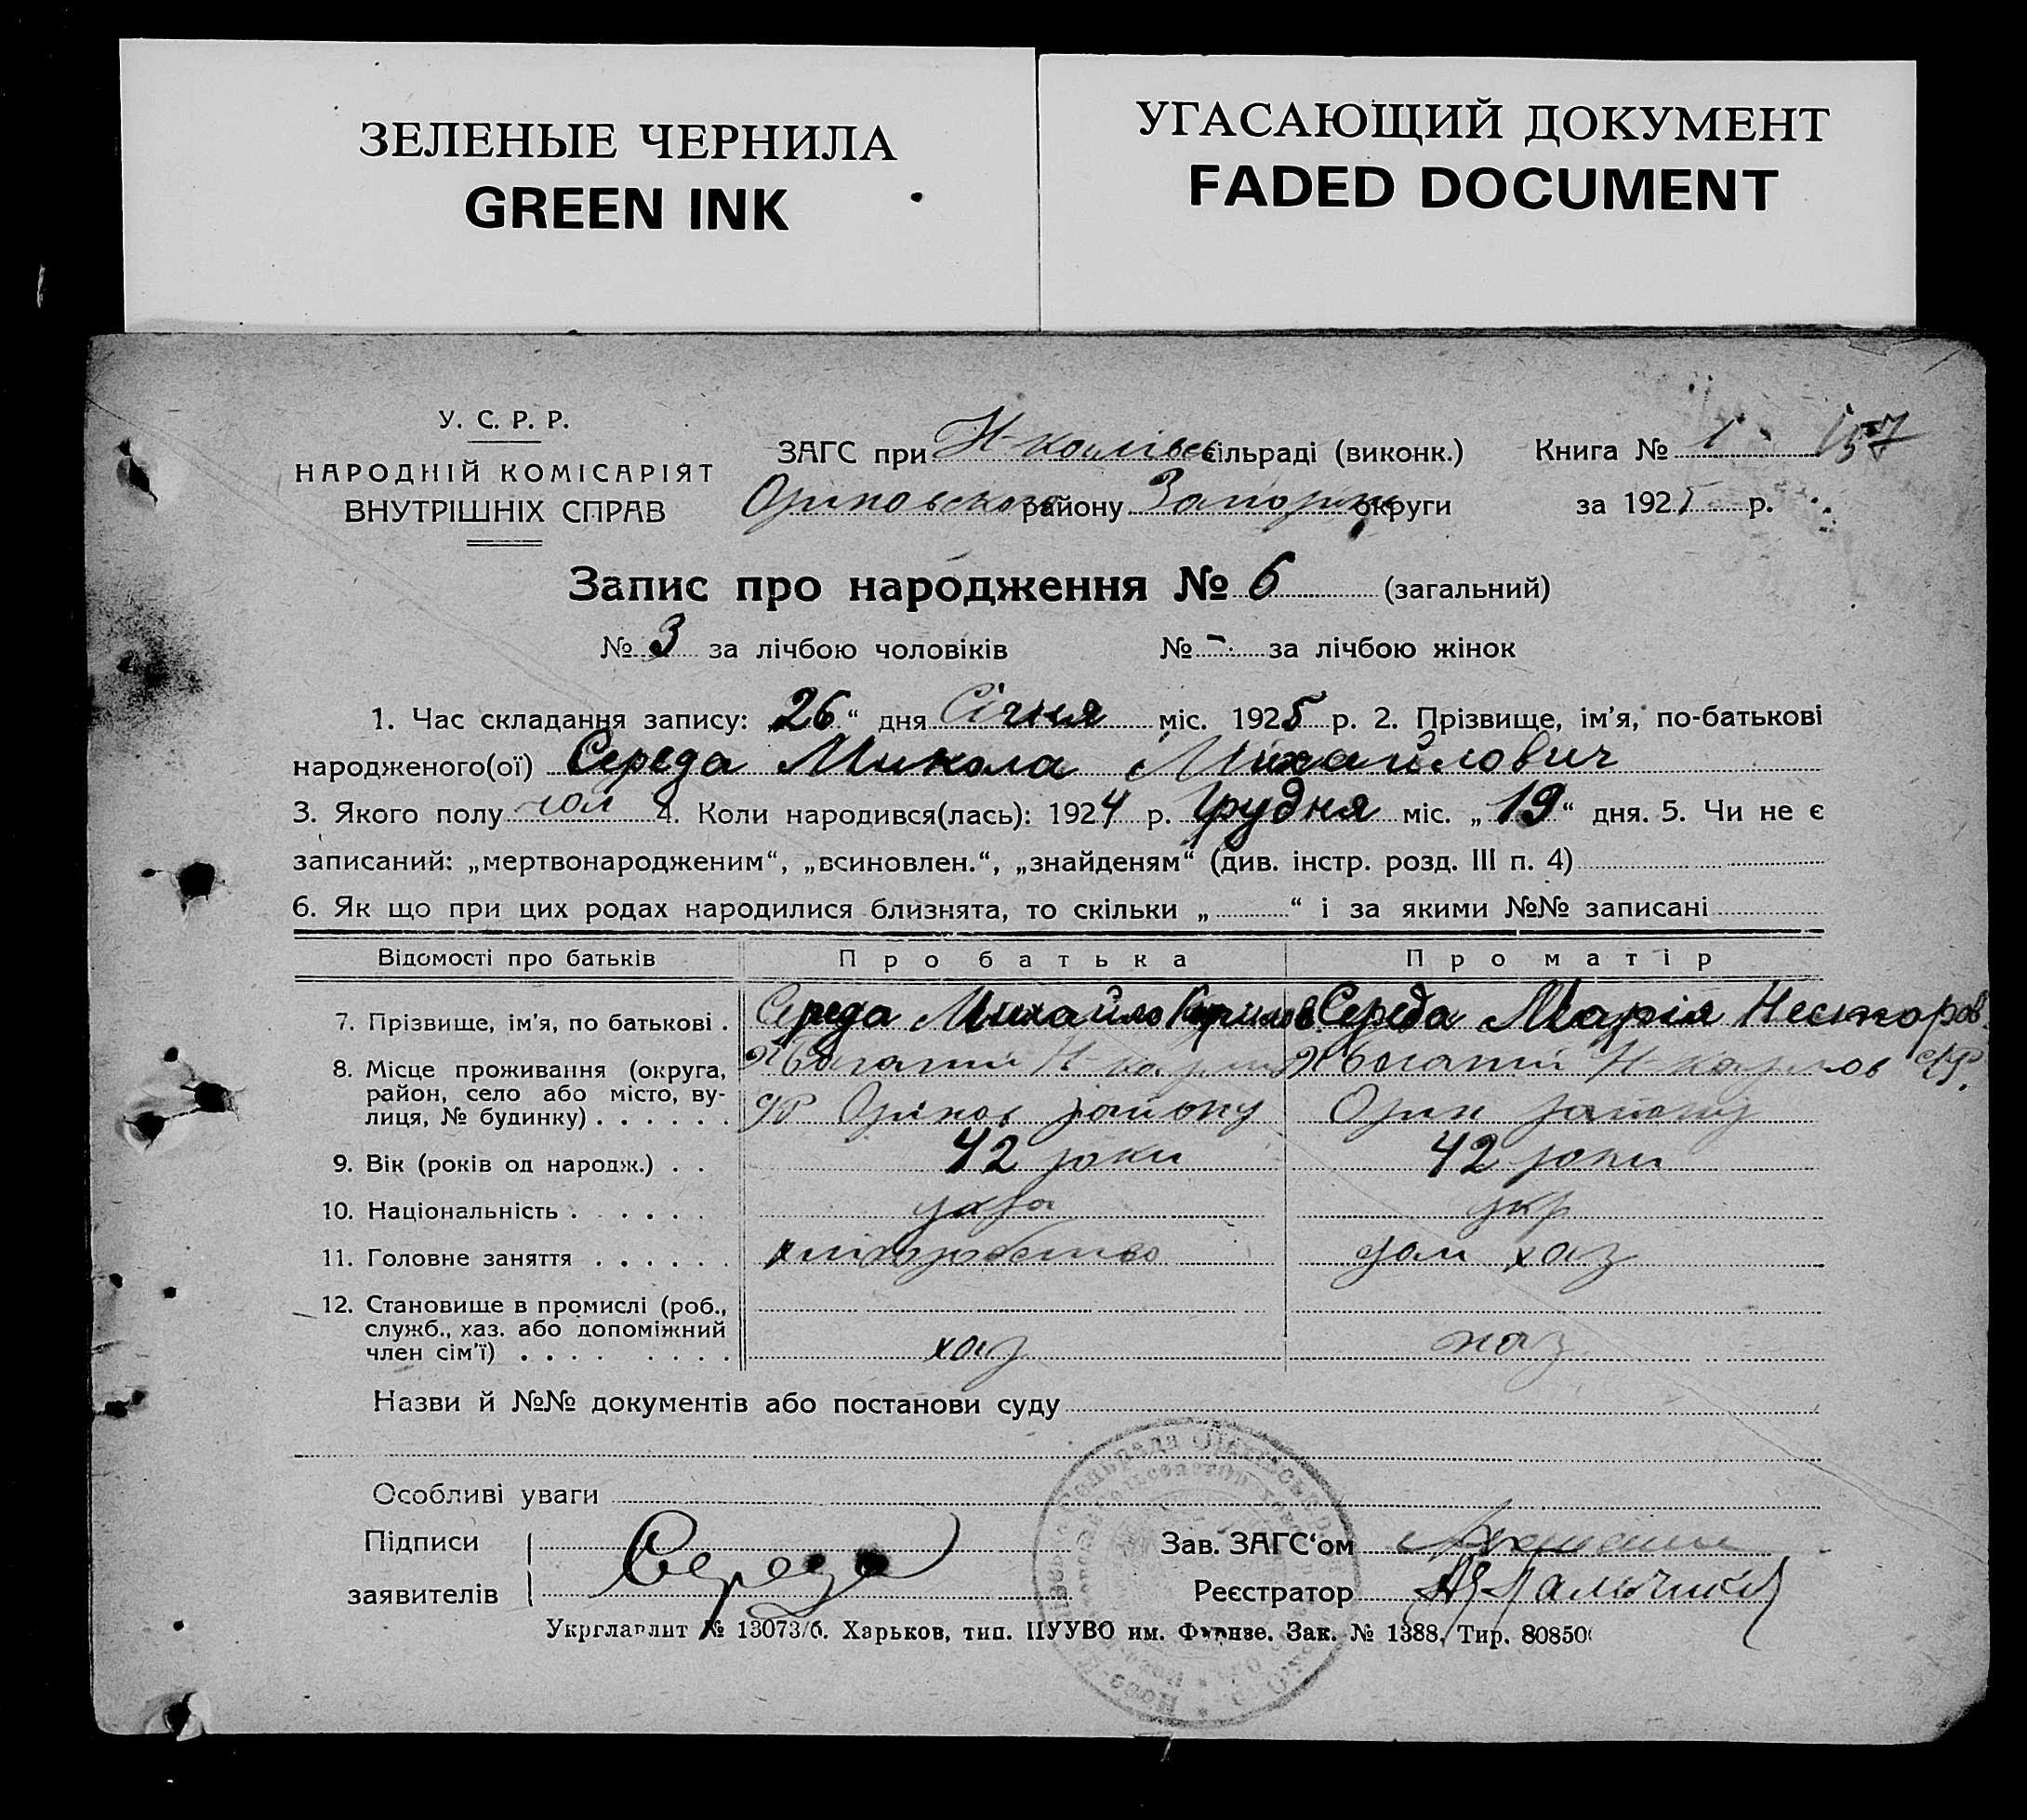 ЗЕЛЕНЫЕ ЧЕРНИЛА
GREEN INK
УГАСАЮЩИЙ ДОКУМЕНТ
FADED DOCUMENT
У. С. Р. Р.
НАРОДНІЙ КОМІСАРІЯТ
ВНУТРІШНІХ СПРАВ
ЗАГС при сільраді (виконк.)
Книга № 1 157
району округи
за 1925 р.
Запис про народження № 6 (загальний)
№ 3 за лічбою чоловіків № - за лічбою жінок
1. Час складання запису: 26 “ дня Січня міс. 1925 р. 2. Прізвище, ім'я, по-батькові
народженого(ої) Середа Микола Михайлович
3. Якого полу чол 4. Коли народився(лась): 1924 р. Грудня міс. „ 19 “ дня. 5. Чи не є
записаний: „мертвонародженим“, „всиновлен.“, „знайденям“ (див. інстр. розд. III п. 4)
6. Як що при цих родах народилися близнята, то скільки „ “ і за якими №№ записані
Відомості про батьків Про батька Про матір
7. Прізвище, ім'я, по батькові . Середа Михайло Кирилов Середа Марія Нестеров
8. Місце проживання (округа,
район, село або місто, ву-
лиця, № будинку) . . . . . . Оріхов району Оріх району
9. Вік (років од народж.) . . 42 роки 42 роки
10. Національність . . . . . . укра укр
11. Головне заняття . . . . . . хліборобство дом хаз
12. Становище в промислі (роб.,
служб., хаз. або допоміжний
член сім'ї) . . . . . . . . хаз хаз
Назви й №№ документів або постанови суду
Особливі уваги
Підписи
заявителів
Середа
Зав. ЗАГС‘ом
Реєстратор
Укрглавлит № 13073/б. Харьков, тип. ПУУВО им. Фрунзе. Зак. № 1388, Тир. 80850